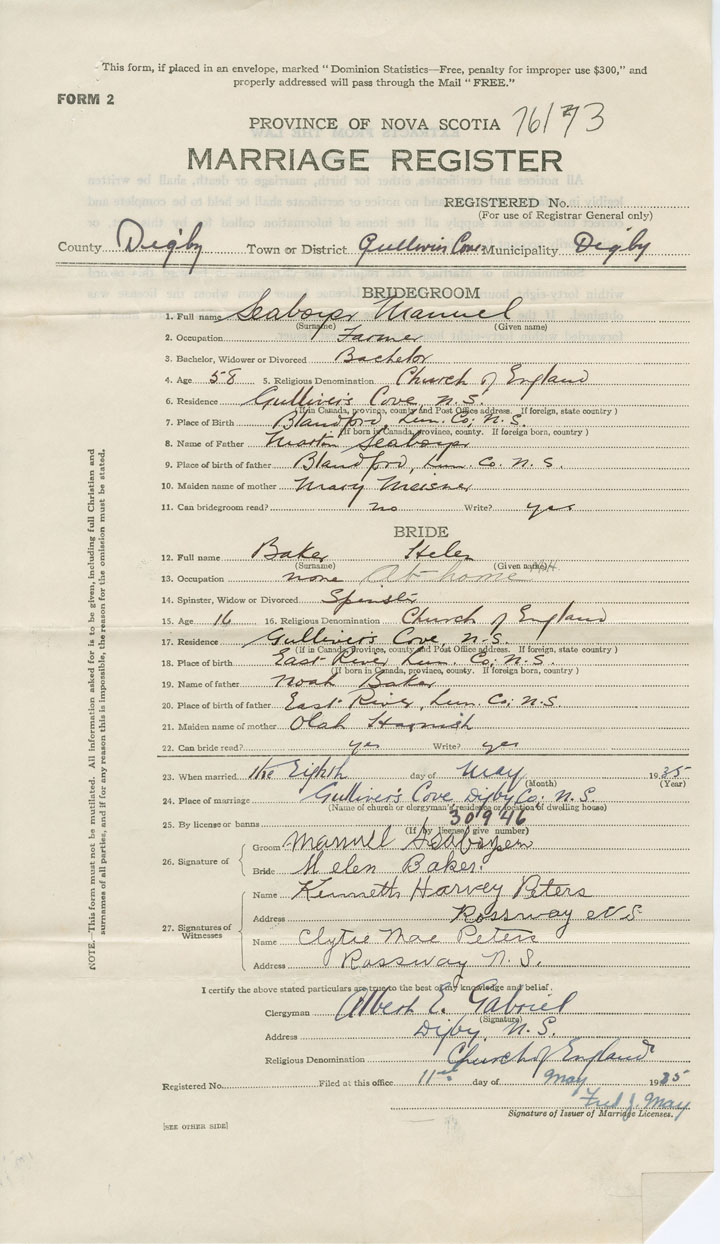 This form, if placed in an envelope, marked "Dominion Statistics—Free, penalty for improper use $300," and
properly addressed will pass through the Mail "FREE."
FORM 2
PROVINCE OF NOVA SCOTIA 76173
MARRIAGE REGISTER
REGISTERED No.
(For use of Registrar General only)
County Digby Town or District Gullivers Cove Municipality Digby
BRIDEGROOM
1. Full name Seaboyer Manuel
(Surname) (Given name)
2. Occupation Farmer
3. Bachelor, Widower or Divorced Bachelor
4. Age 58 5. Religious Denomination Church of England
6. Residence Gulliver's Cove, N.S.
(If in Canada, province, county and Post Office address. If foreign, state country)
7. Place of Birth Blandford, Lun. Co; N.S.
(If born in Canada, province, county. If foreign born, country)
8. Name of Father Martin Seaboyer
9. Place of birth of father Blandford, Lun. Co. N.S.
10. Maiden name of mother Mary Meisner
11. Can bridegroom read? no Write? yes
BRIDE
12. Full name Baker Helen
(Surname) (Given name)
13. Occupation none At home
14. Spinster, Widow or Divorced Spinster
15. Age 16 16. Religious Denomination Church of England
17. Residence Gulliver's Cove, N.S.
(If in Canada, province, county and Post Office address. If foreign, state country)
18. Place of birth East River Lun. Co; N.S.
(If born in Canada, province, county. If foreign born, country)
19. Name of father Noah Baker
20. Place of birth of father East River, Lun. Co; N.S.
21. Maiden name of mother Olah Harnish
22. Can bride read? yes Write? yes
23. When married the Eighth day of May 1935
(Month) (Year)
24. Place of marriage Gulliver's Cove Digby Co; N.S.
(Name of church or clergyman's residence or location of dwelling house)
25. By license or banns 30946
(If by license, give number)
26. Signature of
Groom Manuel Seaboyer
Bride Helen Baker.
27. Signatures of Witnesses
Name Kenneth Harvey Peters
Address Rossway N S
Name Clytie Mae Peters
Address Rossway N.S.
I certify the above stated particulars are true to the best of my knowledge and belief.
Clergyman Albert E. Gabriel
(Signature)
Address Digby, N.S.
Religious Denomination Church of England
Registered No. Filed at this office 11th day of May 1935
Fred J. May
Signature of Issuer of Marriage Licenses.
[SEE OTHER SIDE]
NOTE.—This form must not be mutilated. All information asked for is to be given, including full Christian and
surnames of all parties, and if for any reason this is impossible, the reason for the omission must be stated.